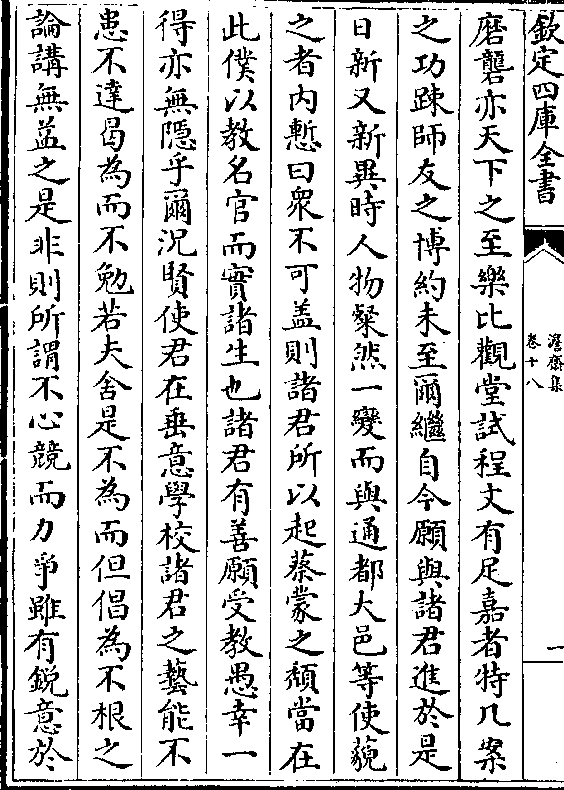 欽定四庫全書
澹齋集
卷十八
一
磨礱亦天下之至樂比觀堂試程文有足嘉者特几案
之功踈師友之博約未至爾繼自今願與諸君進於是
日新又新異時人物粲然一變而與通都大邑等使藐
之者内慙曰衆不可盖則諸君所以起蔡蒙之頽當在
此僕以教名官而實諸生也諸君有善願受教愚幸一
得亦無隱乎爾況賢使君在垂意學校諸君之藝能不
患不達曷為而不勉若夫舍是不為而但倡為不根之
論講無益之是非則所謂不心競而力爭雖有鋭意於